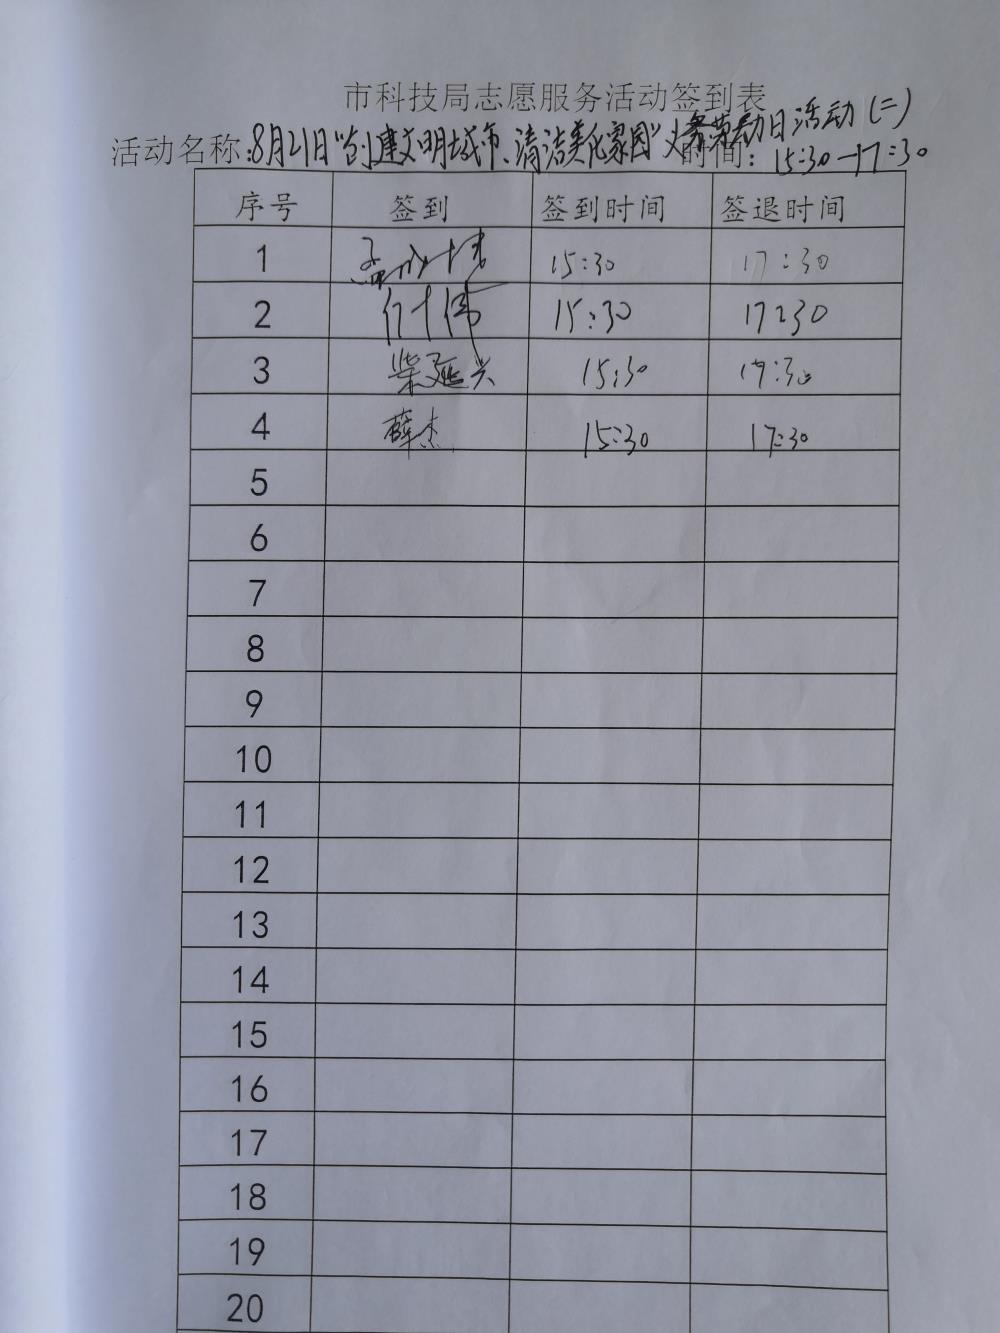 市科技局志愿服务活动签到表
活动名称:8月21日"创建文明城市、清洁美化家园"义务劳动日活动(二) 时间:15:30—17:30
序号 签到 签到时间 签退时间
1 15:30 17:30
2 付十伟 15:30 17:30
3 柴延兴 15:30 17:30
4 薛杰 15:30 17:30
5
6
7
8
9
10
11
12
13
14
15
16
17
18
19
20